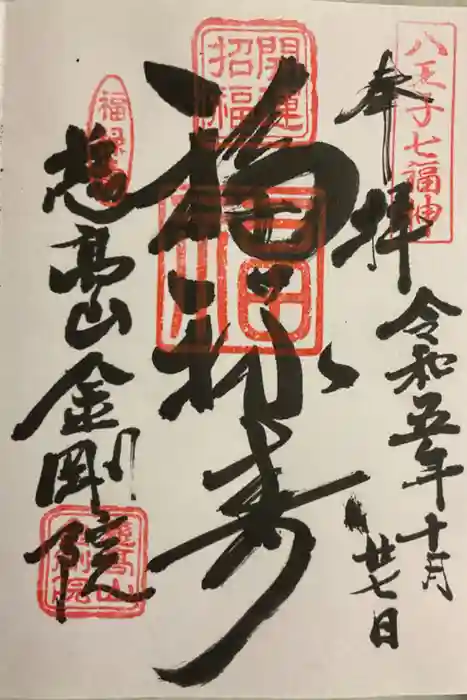 八王子七福神
奉拝
令和五年十月
廿七日
開運
招福
福禄寿
福禄寿
慈高山金剛院